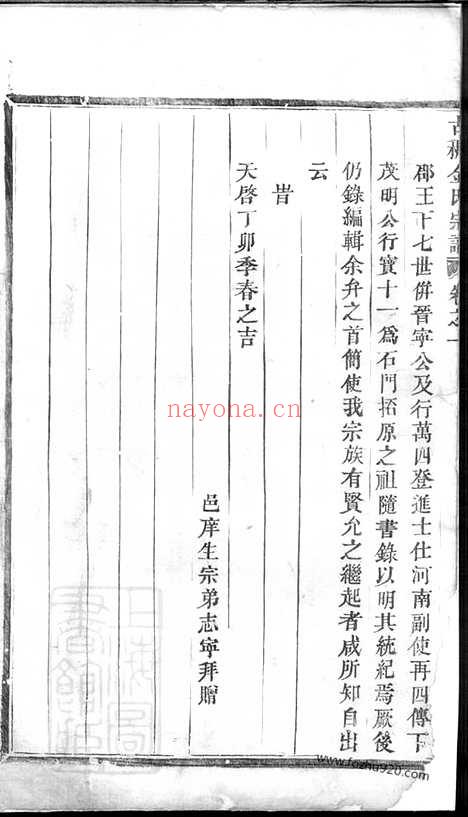 古稀金氏宗譜 卷之一
郡王下七世併晉寧公及行萬四登進士仕河南副使再四傳下
茂明公行寶十一爲石門拓原之祖隨書錄以明其統紀焉厥後
仍錄編輯余弁之首簡使我宗族有賢允之繼起者咸所知自出
云
旹
天啓丁卯季春之吉
邑庠生宗弟志寧拜贈
nayona.cn
www.fozhu920.com